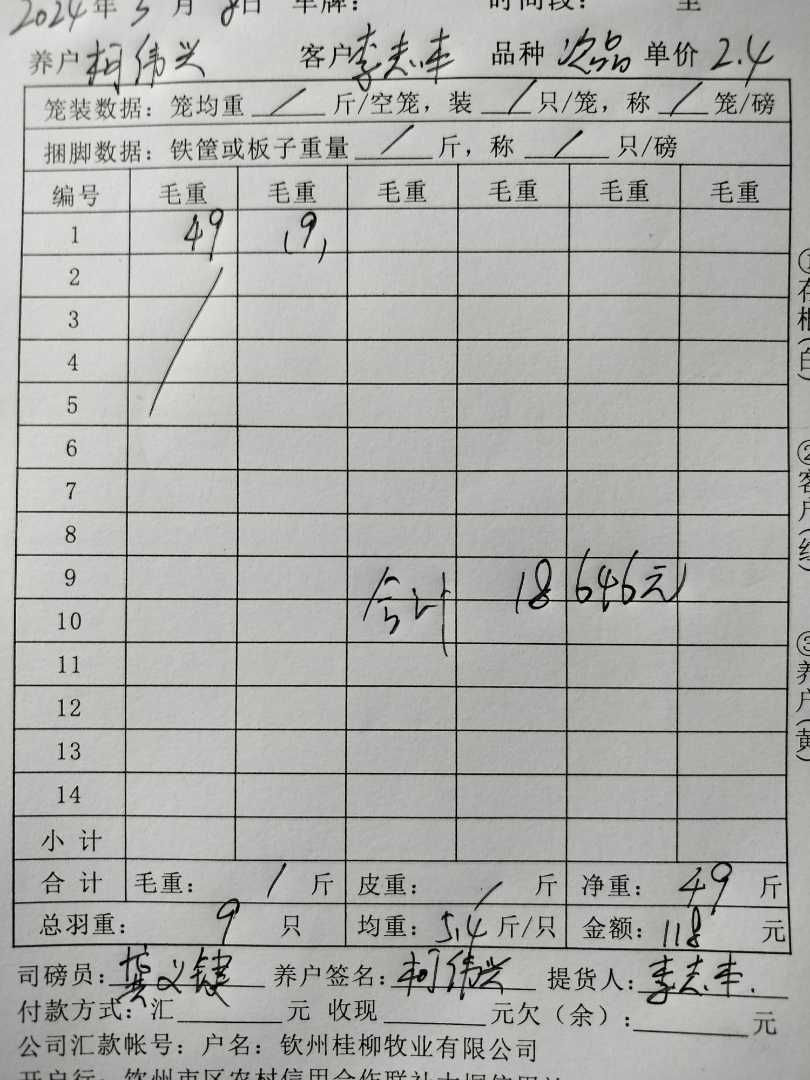 2024年3月8日 车牌： 时间段： 至
养户 柯伟兴 客户 李志丰 品种 次品 单价 2.4
笼装数据：笼均重 / 斤/空笼，装 / 只/笼，称 / 笼/磅
捆脚数据：铁筐或板子重量 / 斤，称 / 只/磅
编号 毛重 毛重 毛重 毛重 毛重 毛重
1 49 (9)
2
3
4
5
6
7
8
9
合计 18646元
10
11
12
13
14
小计
合计 毛重： / 斤 皮重： / 斤 净重： 49 斤
总羽重： 9 只 均重：5.4 斤/只 金额：118 元
司磅员： 龚义键 养户签名： 柯伟兴 提货人： 李志丰.
付款方式：汇 元 收现 元欠（余）： 元
公司汇款帐号：户名：钦州桂柳牧业有限公司
①在根（白）
②客户（红）
③养户（黄）